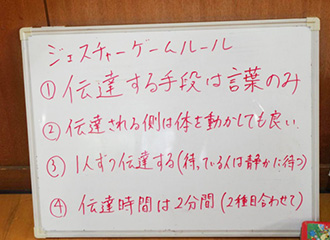 ジェスチャーゲームルール
① 伝達する手段は言葉のみ
② 伝達される側は体を動かしても良い
③ 1人ずつ伝達する(待っている人は静かに待つ)
④ 伝達時間は2分間(2種目合わせて)